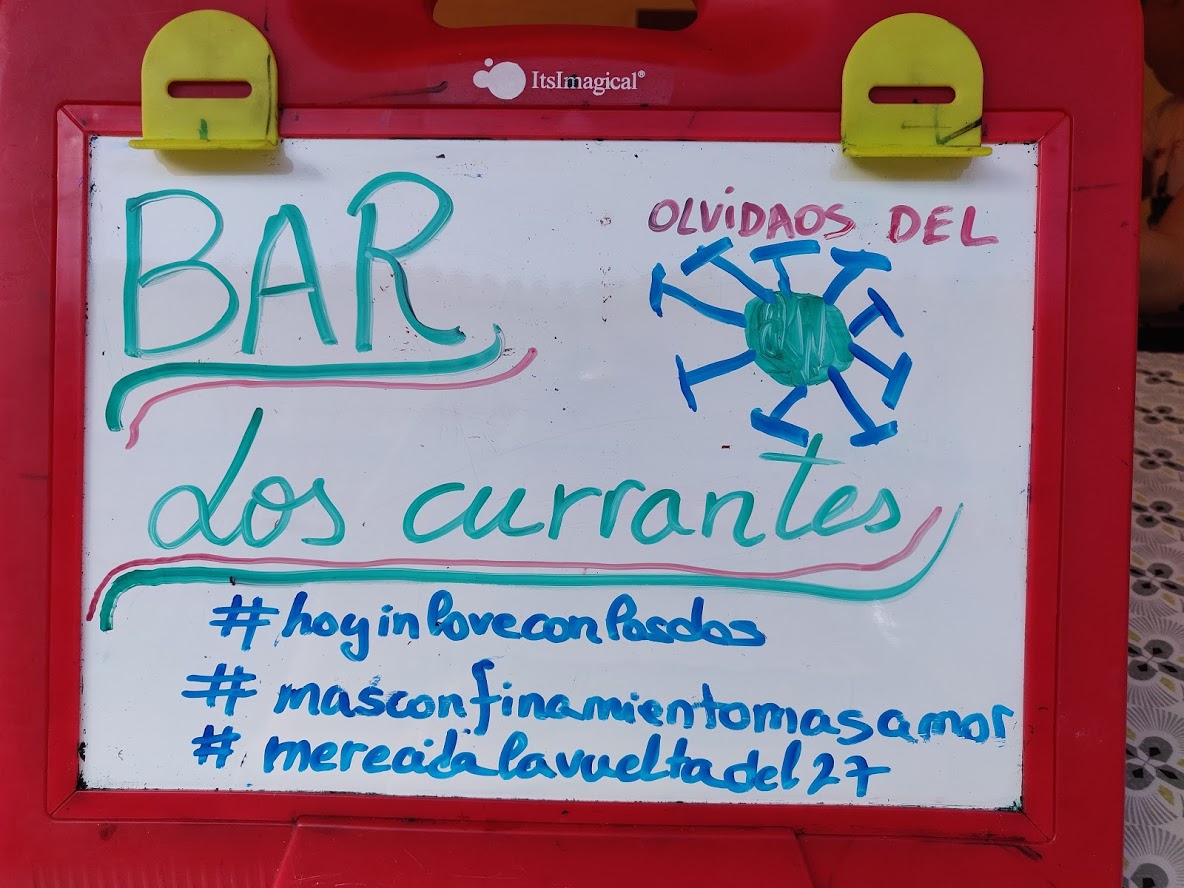 ItsImagical®
OLVIDAOS DEL
BAR
Los currantes
#hoyinloveconlasdos
#masconfinamientomasamor
#merecidalavueltadel27